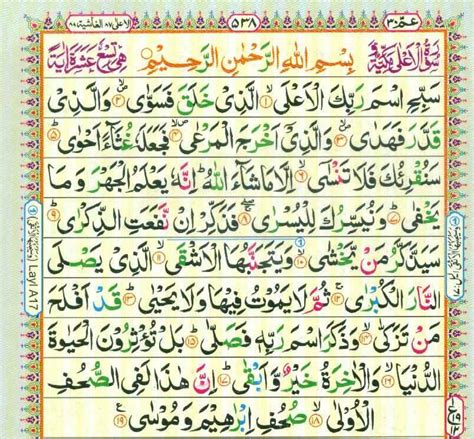 عمّ ٣٠ ٥٣٨ الاعلى ٨٧ الغاشية ٨٨
سُوْرَةُ الْاَعْلٰى مَكِّيَّةٌ بِسْمِ اللهِ الرَّحْمٰنِ الرَّحِيْمِ هِيَ تِسْعَ عَشْرَةَ اٰيَةً
سَبِّحِ اسْمَ رَبِّكَ الْاَعْلَى ۙ﴿۱﴾ الَّذِىْ خَلَقَ فَسَوّٰى ۪ۙ﴿۲﴾ وَالَّذِىْ
قَدَّرَ فَهَدٰى ۪ۙ﴿۳﴾ وَالَّذِىْۤ اَخْرَجَ الْمَرْعٰى ۪ۙ﴿۴﴾ فَجَعَلَهٗ غُثَآءً اَحْوٰى ؕ﴿۵﴾
سَنُقْرِئُكَ فَلَا تَنْسٰٓى ۙ﴿۶﴾ اِلَّا مَا شَآءَ اللّٰهُ ؕ اِنَّهٗ يَعْلَمُ الْجَهْرَ وَمَا
يَخْفٰى ؕ﴿۷﴾ وَنُيَسِّرُكَ لِلْيُسْرٰى ۚۖ﴿۸﴾ فَذَكِّرْ اِنْ نَّفَعَتِ الذِّكْرٰى ؕ﴿۹﴾
سَيَذَّكَّرُ مَنْ يَّخْشٰى ۙ﴿۱۰﴾ وَيَتَجَنَّبُهَا الْاَشْقَى ۙ﴿۱۱﴾ الَّذِىْ يَصْلَى
النَّارَ الْكُبْرٰى ۚ﴿۱۲﴾ ثُمَّ لَا يَمُوْتُ فِيْهَا وَلَا يَحْيٰى ؕ﴿۱۳﴾ قَدْ اَفْلَحَ
مَنْ تَزَكّٰى ۙ﴿۱۴﴾ وَذَكَرَ اسْمَ رَبِّهٖ فَصَلّٰى ؕ﴿۱۵﴾ بَلْ تُؤْثِرُوْنَ الْحَيٰوةَ
الدُّنْيَا ۖ﴿۱۶﴾ وَالْاٰخِرَةُ خَيْرٌ وَّاَبْقٰى ؕ﴿۱۷﴾ اِنَّ هٰذَا لَفِى الصُّحُفِ
الْاُوْلٰى ۙ﴿۱۸﴾ صُحُفِ اِبْرٰهِيْمَ وَمُوْسٰى ﴿۱۹﴾
Layl A17